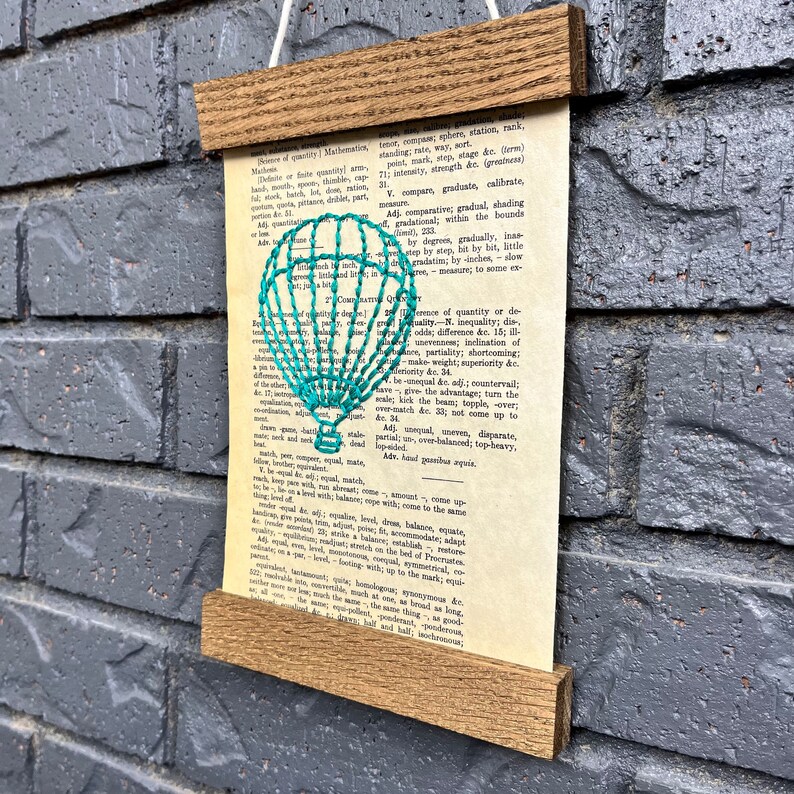 ment, substance, strength.
[Science of quantity] Mathematics,
Mathesis.
[Definite or finite quantity] arm-,
hand-, mouth-, spoon-, thimble-, cap-
ful; stock, batch, lot, dose, ration,
quotum, quota, pittance, driblet, part,
portion &c. 51.
Adj. quantitative, more
or less.
Adv. to the tune
2°. Comparative Quantity
of quantity or degree]
equalization, equ
co-ordination, adjustment, readjust-
ment.
drawn -game, -battle; stale-
mate; neck and neck dead
heat.
match, peer, compeer, equal, mate,
fellow, brother; equivalent.
V. be -equal &c. adj.; equal, match,
reach, keep pace with, run abreast; come –, amount –, come up-
to; be –, lie- on a level with; balance; cope with; come to the same
thing; level off.
render -equal &c. adj.; equalize, level, dress, balance, equate,
handicap, give points, trim, adjust, poise; fit, accommodate; adapt
&c. (render accordant) 23; strike a balance; establish –, restore-
equality, – equilibrium; readjust; stretch on the bed of Procrustes.
Adj. equal, even, level, monotonous, coequal, symmetrical, co-
ordinate; on a -par, – level, – footing- with; up to the mark; equi-
parent.
equivalent, tantamount; quits; homologous; synonymous &c.
522; resolvable into, convertible, much at one, as broad as long,
neither more nor less; much the same –, the same thing –, as good-
as; all -one, – the same; equi-pollent, -ponderant, -ponderous,
-balanced; equalized &c. v.; drawn; half and half; isochronous;
scope, size, calibre; gradation, shade;
tenor, compass; sphere, station, rank,
standing; rate, way, sort.
point, mark, step, stage &c. (term)
71; intensity, strength &c. (greatness)
31.
V. compare, graduate, calibrate,
measure.
Adj. comparative; gradual, shading
off, gradational; within the bounds
(limit), 233.
by degrees, gradually, inas-
step by step, bit by bit, little
by little, inch by inch, by -inches, – slow
degrees, – little and little; in – measure; to some ex-
tent; just a bit.
28. [Difference of quantity or de-
gree] Inequality.—N. inequality; dis-,
odds; difference &c. 15; ill-
unevenness; inclination of
balance, partiality; shortcoming;
make- weight; superiority &c.
33; inferiority &c. 34.
V. be -unequal &c. adj.; countervail;
have –, give- the advantage; turn the
scale; kick the beam; topple, -over;
over-match &c. 33; not come up to
&c. 34.
Adj. unequal, uneven, disparate,
partial; un-, over-balanced; top-heavy,
lop-sided.
Adv. haud passibus æquis.